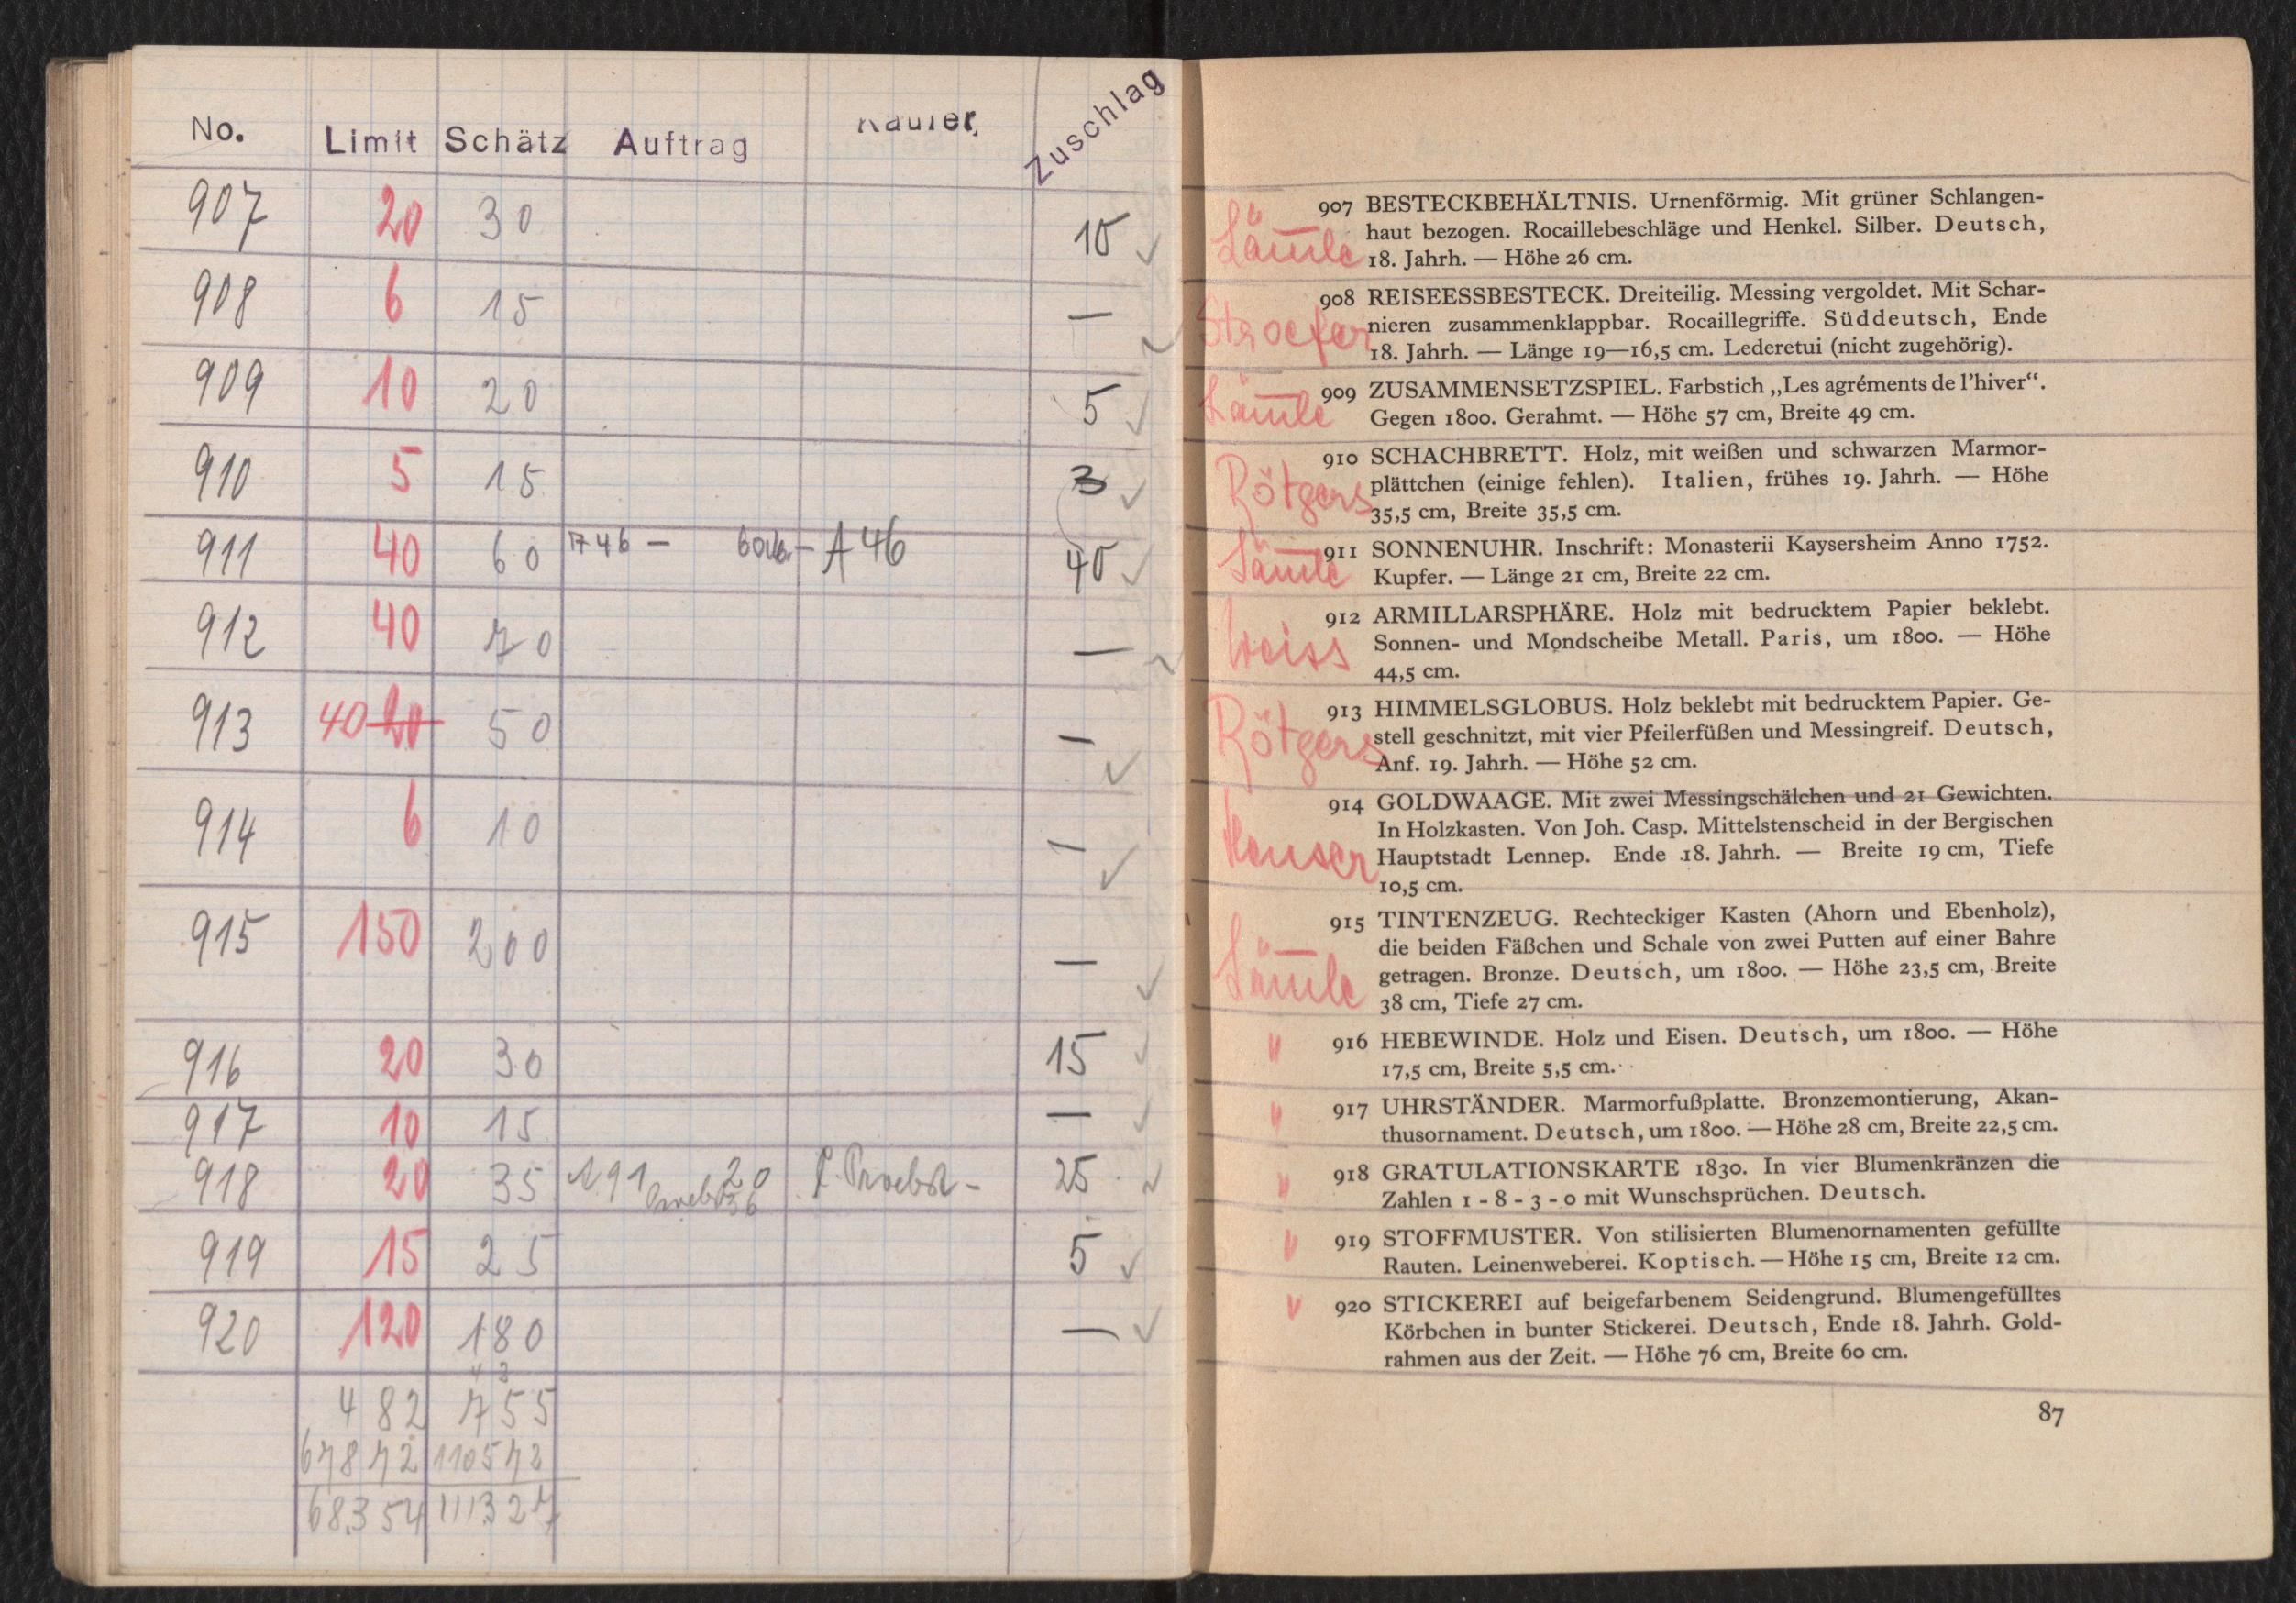 No. Limit Schätz Auftrag Käufer, Zuschlag
907 20 30 10 ✓
908 6 15 —
909 10 20 5 ✓
910 5 15 3 ✓
911 40 60 746 — A 46 40 ✓
912 40 70 —
913 40 20 50 — ✓
914 6 10 — ✓
915 150 200 — ✓
916 20 30 15 ✓
917 10 15 — ✓
918 20 35 191 20 Proebst - 25
36
919 15 25 5 ✓
920 120 180 — ✓
482 755
67872 110572
68.354 111327
907 BESTECKBEHÄLTNIS. Urnenförmig. Mit grüner Schlangen-
haut bezogen. Rocaillebeschläge und Henkel. Silber. Deutsch,
Läмmle 18. Jahrh. — Höhe 26 cm.
908 REISEESSBESTECK. Dreiteilig. Messing vergoldet. Mit Schar-
Stroefer nieren zusammenklappbar. Rocaillegriffe. Süddeutsch, Ende
18. Jahrh. — Länge 19—16,5 cm. Lederetui (nicht zugehörig).
909 ZUSAMMENSETZSPIEL. Farbstich „Les agréments de l'hiver“.
Gegen 1800. Gerahmt. — Höhe 57 cm, Breite 49 cm.
910 SCHACHBRETT. Holz, mit weißen und schwarzen Marmor-
Rötgers plättchen (einige fehlen). Italien, frühes 19. Jahrh. — Höhe
35,5 cm, Breite 35,5 cm.
911 SONNENUHR. Inschrift: Monasterii Kaysersheim Anno 1752.
Kupfer. — Länge 21 cm, Breite 22 cm.
912 ARMILLARSPHÄRE. Holz mit bedrucktem Papier beklebt.
Weiss Sonnen- und Mondscheibe Metall. Paris, um 1800. — Höhe
44,5 cm.
913 HIMMELSGLOBUS. Holz beklebt mit bedrucktem Papier. Ge-
Rötgers stell geschnitzt, mit vier Pfeilerfüßen und Messingreif. Deutsch,
Anf. 19. Jahrh. — Höhe 52 cm.
914 GOLDWAAGE. Mit zwei Messingschälchen und 21 Gewichten.
In Holzkasten. Von Joh. Casp. Mittelstenscheid in der Bergischen
Hauser Hauptstadt Lennep. Ende 18. Jahrh. — Breite 19 cm, Tiefe
10,5 cm.
915 TINTENZEUG. Rechteckiger Kasten (Ahorn und Ebenholz),
die beiden Fäßchen und Schale von zwei Putten auf einer Bahre
getragen. Bronze. Deutsch, um 1800. — Höhe 23,5 cm, Breite
38 cm, Tiefe 27 cm.
" 916 HEBEWINDE. Holz und Eisen. Deutsch, um 1800. — Höhe
17,5 cm, Breite 5,5 cm.
" 917 UHRSTÄNDER. Marmorfußplatte. Bronzemontierung, Akan-
thusornament. Deutsch, um 1800. — Höhe 28 cm, Breite 22,5 cm.
" 918 GRATULATIONSKARTE 1830. In vier Blumenkränzen die
Zahlen 1 - 8 - 3 - 0 mit Wunschsprüchen. Deutsch.
" 919 STOFFMUSTER. Von stilisierten Blumenornamenten gefüllte
Rauten. Leinenweberei. Koptisch. — Höhe 15 cm, Breite 12 cm.
" 920 STICKEREI auf beigefarbenem Seidengrund. Blumengefülltes
Körbchen in bunter Stickerei. Deutsch, Ende 18. Jahrh. Gold-
rahmen aus der Zeit. — Höhe 76 cm, Breite 60 cm.
87